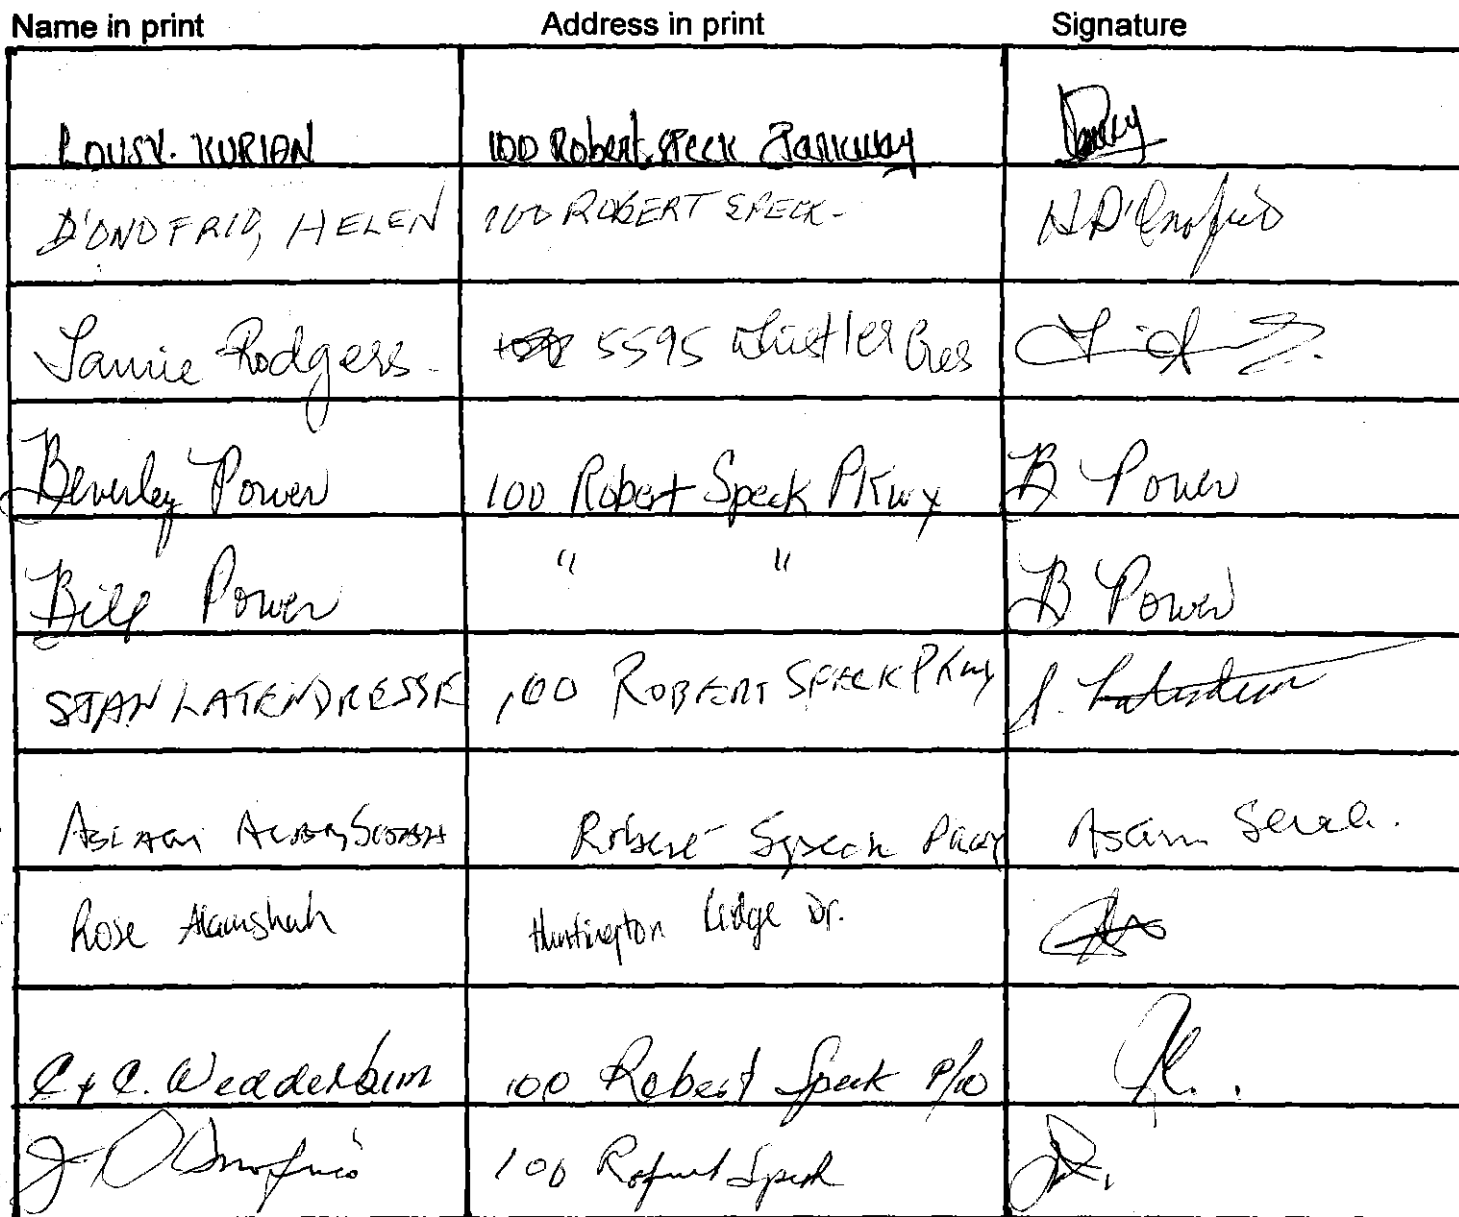 Name in print Address in print Signature
LOUSY. KURIAN 100 Robert Speck Parkway
D'ONOFRIO, HELEN 100 ROBERT SPECK- H D'Onofrio
Jamie Rodgers. 5595 Whistler Cres
Beverley Power 100 Robert Speck PKwy B Power
Bill Power " " B Power
STAN LATENDRESSE 100 ROBERT SPECK PKwy S. Latendresse
Robert Speck Pkwy
Rose Alamshah Huntington Ridge Dr.
C & C. Wedderburn 100 Robert Speck
J. D'Onofrio 100 Robert Speck